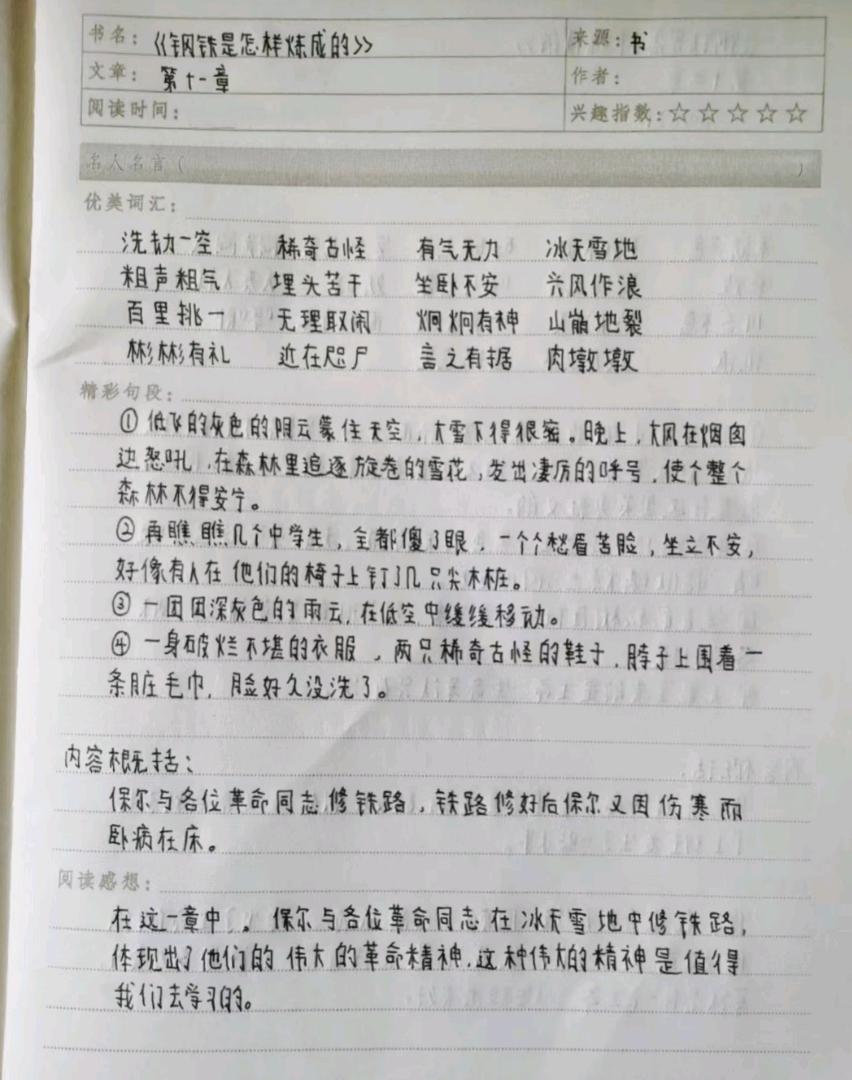 书名：《钢铁是怎样炼成的》 来源：书
文章：第十一章 作者：
阅读时间： 兴趣指数：☆☆☆☆☆
名人名言（ ）
优美词汇：
洗劫一空 稀奇古怪 有气无力 冰天雪地
粗声粗气 埋头苦干 坐卧不安 兴风作浪
百里挑一 无理取闹 炯炯有神 山崩地裂
彬彬有礼 近在咫尺 言之有据 肉墩墩
精彩句段：
①低飞的灰色的阴云蒙住天空，大雪下得很密。晚上，大风在烟囱
边怒吼，在森林里追逐旋卷的雪花，发出凄厉的呼号，使个整个
森林不得安宁。
②再瞧瞧几个中学生，全都傻了眼，一个个愁眉苦脸，坐立不安，
好像有人在他们的椅子上钉了几只尖木桩。
③一团团深灰色的雨云，在低空中缓缓移动。
④一身破烂不堪的衣服，两只稀奇古怪的鞋子，脖子上围着一
条脏毛巾，脸好久没洗了。
内容概括：
保尔与各位革命同志修铁路，铁路修好后保尔又因伤寒而
卧病在床。
阅读感想：
在这一章中，。保尔与各位革命同志在冰天雪地中修铁路，
体现出了他们的伟大的革命精神，这种伟大的精神是值得
我们去学习的。